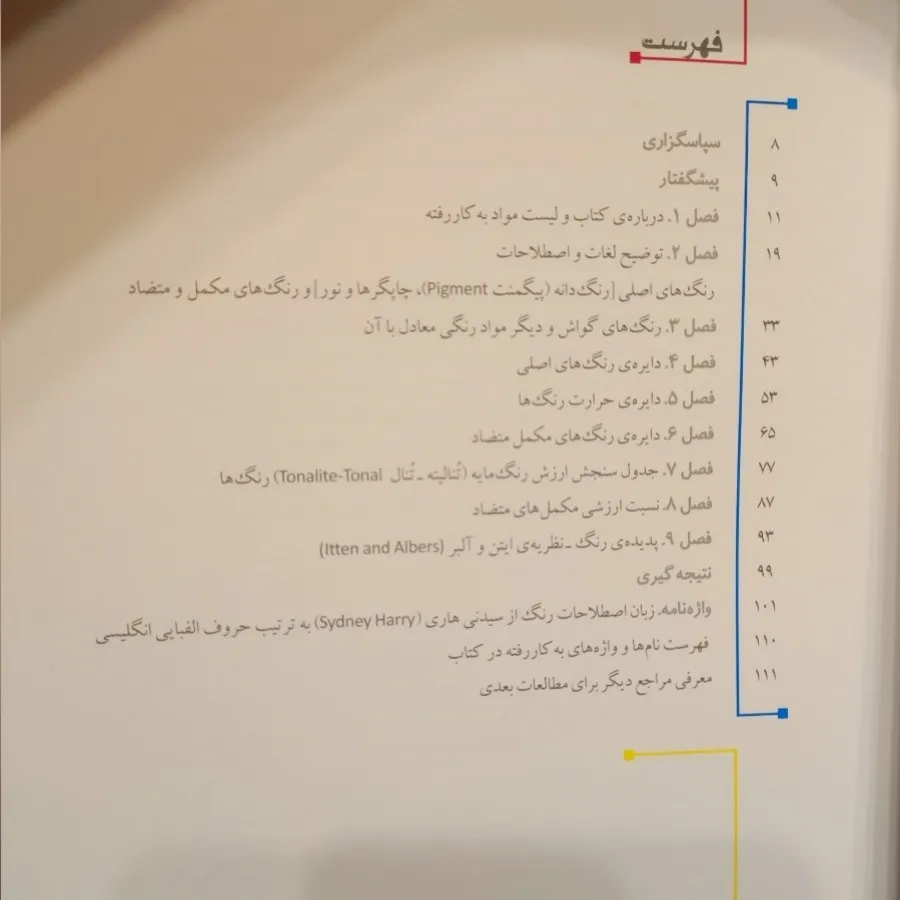 فهرست
۸ سپاسگزاری
۹ پیشگفتار
۱۱ فصل ۱. درباره‌ی کتاب و لیست مواد به کار رفته
۱۹ فصل ۲. توضیح لغات و اصطلاحات
رنگ‌های اصلی [رنگ‌دانه (پیگمنت Pigment)، چاپگرها و نور] و رنگ‌های مکمل و متضاد
۳۳ فصل ۳. رنگ‌های گواش و دیگر مواد رنگی معادل با آن
۴۳ فصل ۴. دایره‌ی رنگ‌های اصلی
۵۳ فصل ۵. دایره‌ی حرارت رنگ‌ها
۶۵ فصل ۶. دایره‌ی رنگ‌های مکمل متضاد
۷۷ فصل ۷. جدول سنجش ارزش رنگ‌مایه (تُنالیته ـ تُنال Tonalite-Tonal) رنگ‌ها
۸۷ فصل ۸. نسبت ارزشی مکمل‌های متضاد
۹۳ فصل ۹. پدیده‌ی رنگ ـ نظریه‌ی ایتن و آلبر (Itten and Albers)
۹۹ نتیجه گیری
۱۰۱ واژه‌نامه. زبان اصطلاحات رنگ از سیدنی هاری (Sydney Harry) به ترتیب حروف الفبایی انگلیسی
۱۱۰ فهرست نام‌ها و واژه‌های به کار رفته در کتاب
۱۱۱ معرفی مراجع دیگر برای مطالعات بعدی